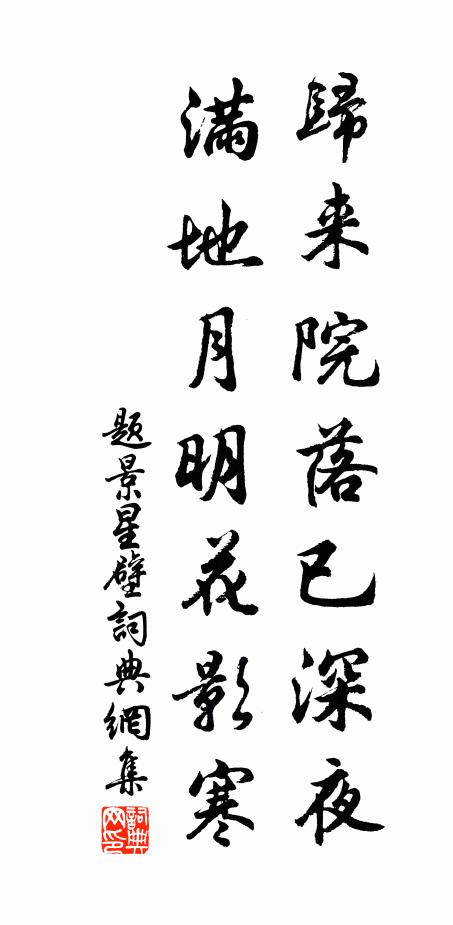 歸来院落已深夜
滿地月明花影寒
題景星壁詞典網集
詞典網印